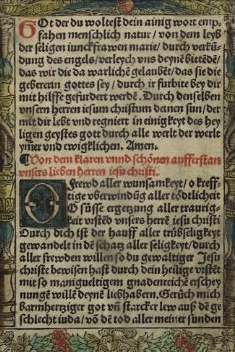 GOt der du woltest dein ainig wort emp-
fahen menschlich natur / von dem leyb
der seligen iunckfrawen marie / durch verkü̅-
dung des engels / verleych vns deyne̅ bittēdē /
das wir die da warlichē gelaubē̅ / das sie die
gebererin gottes sey / durch ir fürbite bey dir
mit hilffe gefürdert werdē. Durch denselben
vnsern herren iesum christum deinen sun / der
mit dir lebt vnd regniert in einigkeyt des hey
ligen geystes gott durch alle welt der welt
ymer vnd ewigklichen. Amen.
Von dem klaren vnnd schönen aufferstan
vnsers lieben herren iesu christi.
O frewd aller wunsamkeyt / o kreff-
tige vberwindūg aller tödtlicheit
O süsse ergetzung aller traurick-
eit vrstēd vnsers herrē iesu christi
Durch dich ist der hauff aller trübseligkeyt
gewandelt in dē schatz aller seligkeyt / durch
aller frewden willen so du gewaltiger Jesu
christe bewisen hast durch dein heilige vrstēt
mit so manigueltigem gnadenreichē erschey
nungē willē deynē liebhabern, Geruch mich
barmhertziger got vn̄ starcker lew auß dē ge
schlecht iuda / vō dē tod aller meiner sünden